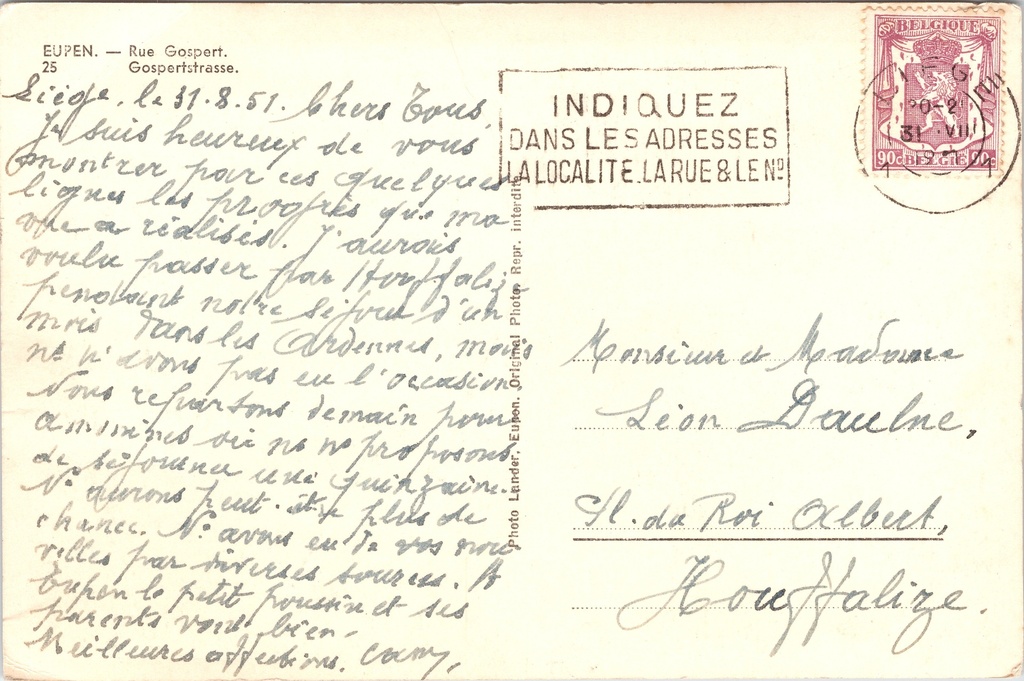 EUPEN. — Rue Gospert.
25 Gospertstrasse.
Liège, le 31.8.51. Chers Tous,
Je suis heureux de vous
montrer par ces quelques
lignes les progrès que ma
vue a réalisés. J'aurais
voulu passer par Houffalize
pendant notre séjour d'un
mois dans les Ardennes, mais
ns n'avons pas eu l'occasion.
Nous repartons demain pour
où ns ns proposons
de séjourner une quinzaine.
Ns aurons peut-être plus de
chance. Ns avons eu de vos nou
velles par diverses sources. A
Eupen le petit poussin et ses
parents vont bien.
Meilleures affections. Camy.
Photo Lander, Eupen. Original Photo. Repr. interdite
INDIQUEZ
DANS LES ADRESSES
LA LOCALITE. LA RUE & LE Nº
BELGIQUE
90c BELGIE 90c
31 VIII
Monsieur et Madame
Léon Daulne,
Pl. du Roi Albert,
Houffalize.